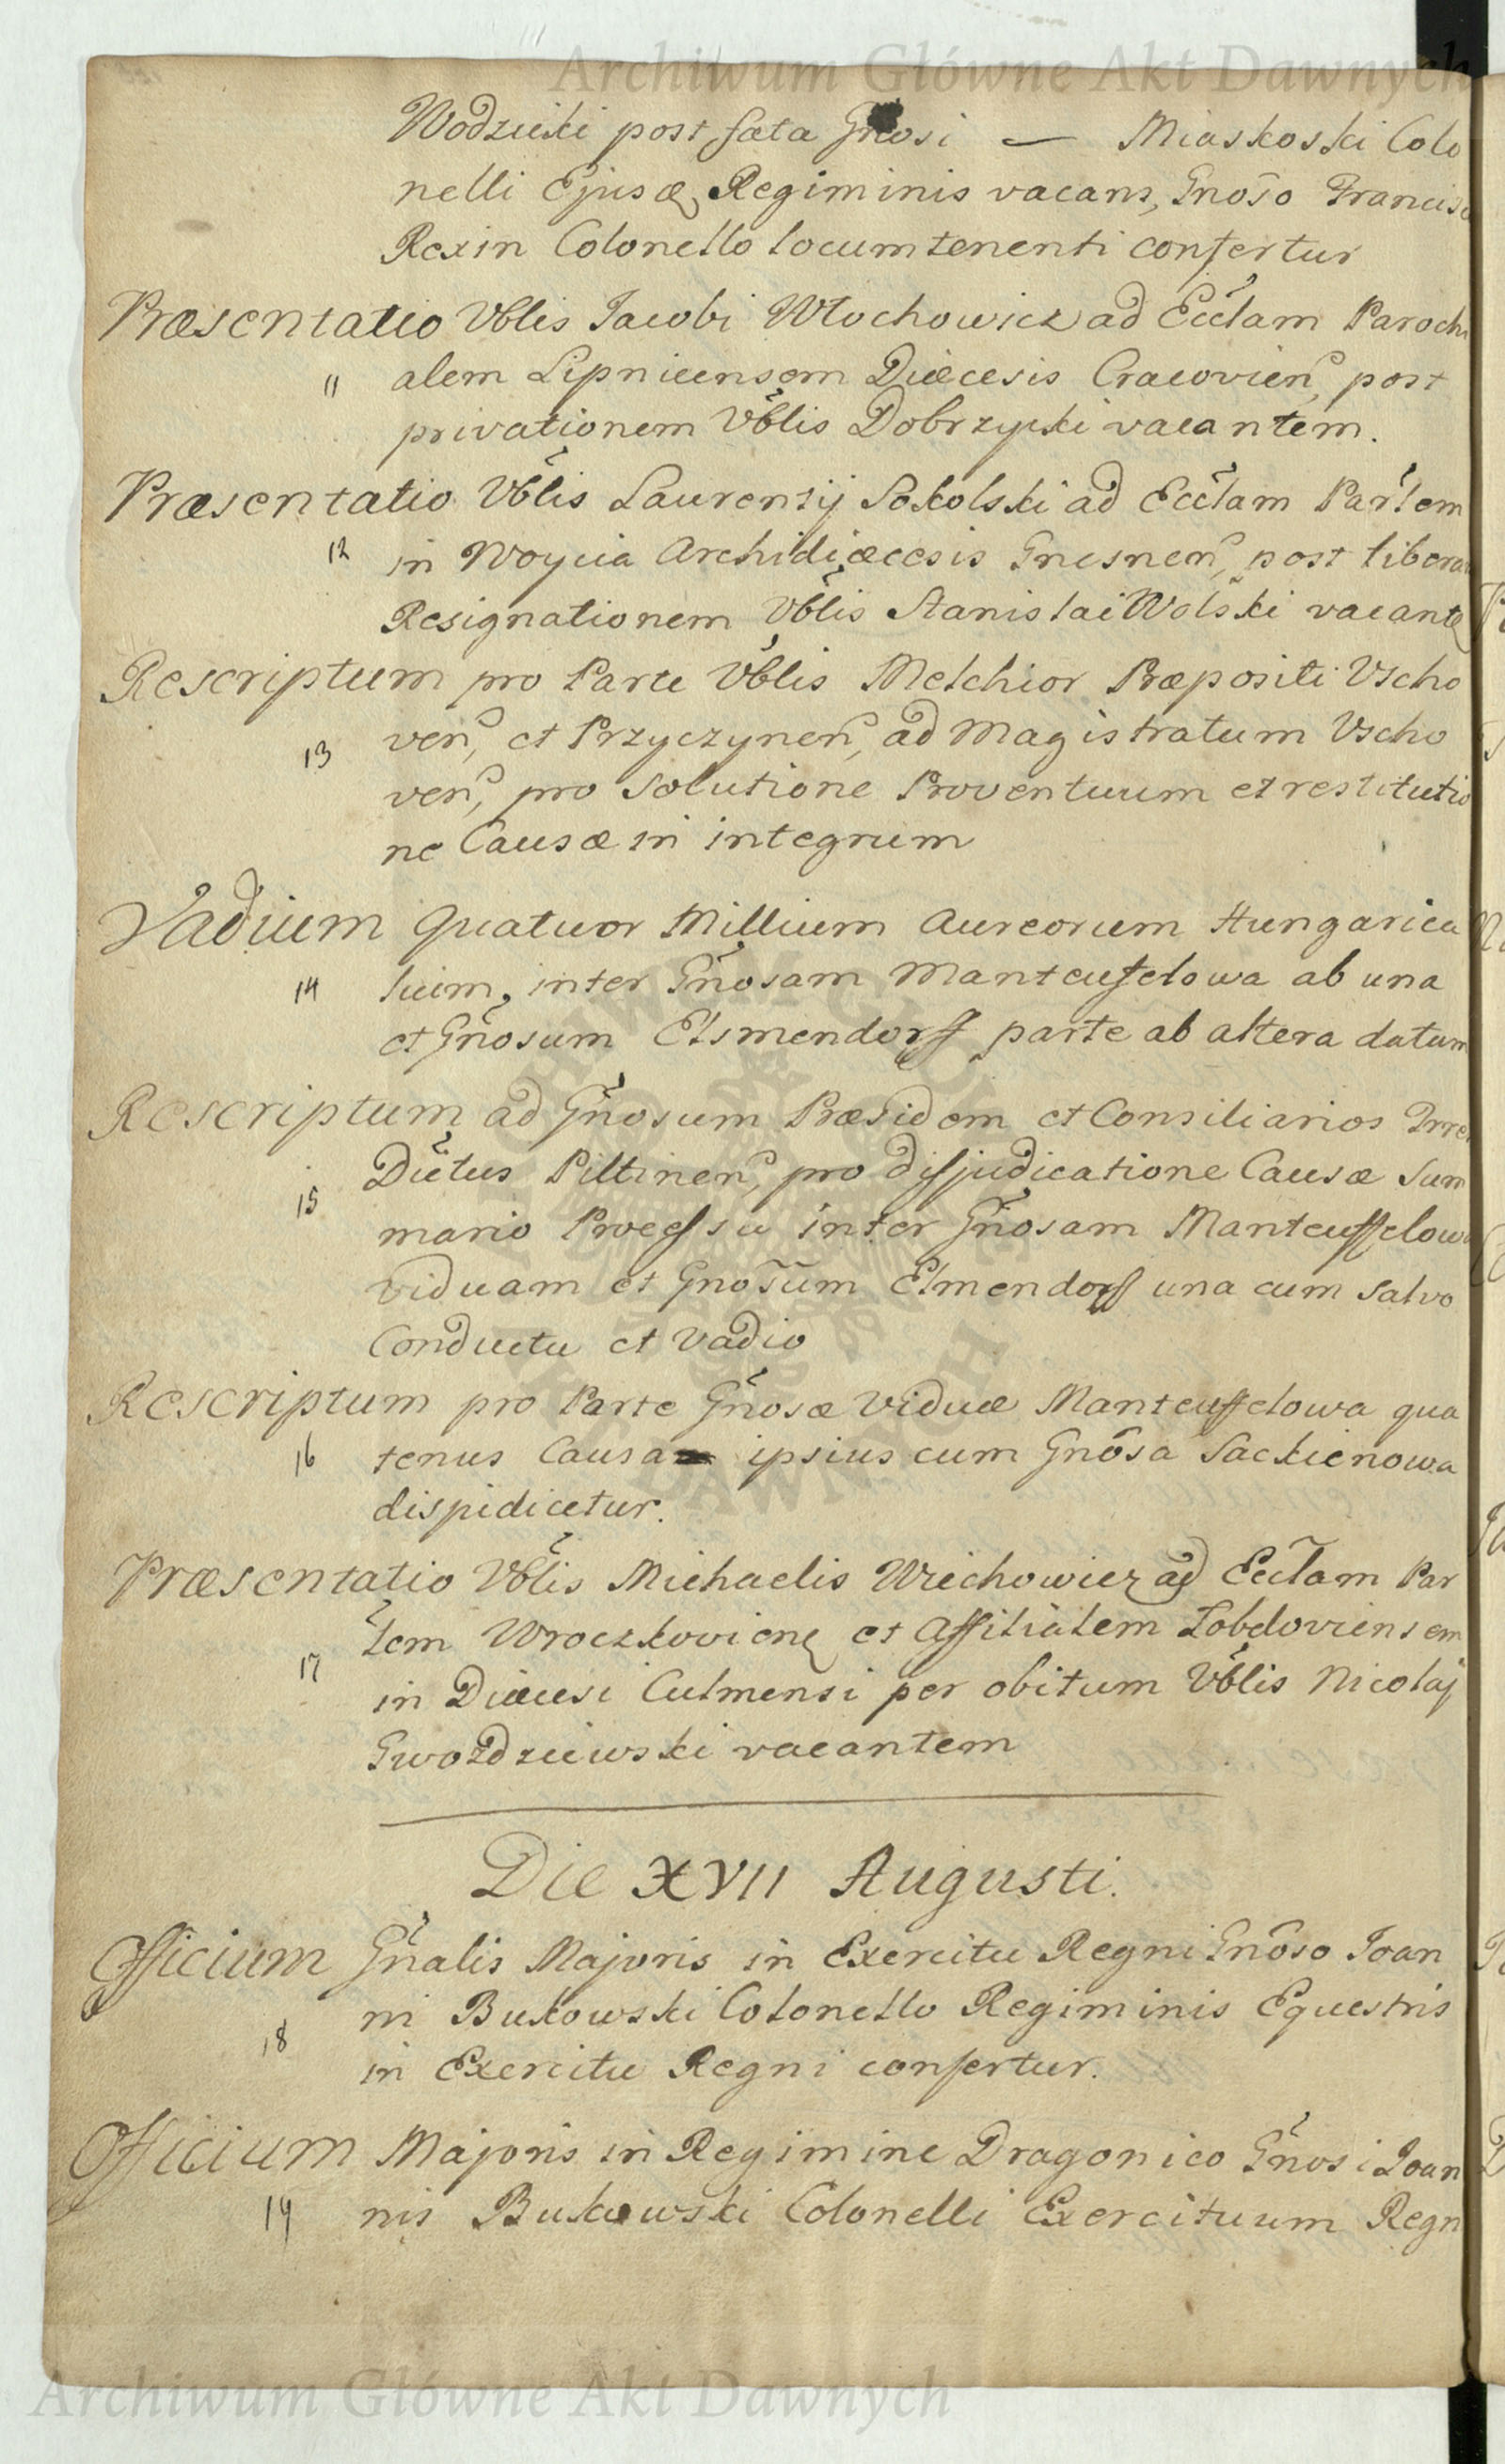 Archiwum Główne Akt Dawnych
Wodzicki post fata Gnosi — Miaskoski Colo
nelli Ejusdę Regiminis vacans, Gnoso Francisc
Rexin Colonello locumtenenti confertur
Præsentatio Vblis Jacobi Włochowicz ad Ecclam Parochi
11 alem Lipnicensem Diæcesis Cracovien, post
privationem Vblis Dobrzycki vacantem.
Præsentatio Vblis Laurentij Sokolski ad Ecclam Parlem
12 in Woycia Archidiæcesis Gnesnen, post libera
Resignationem Vblis Stanislai Wolski vacantę
Rescriptum pro Parte Vblis Melchior Præpositi Vscho
13 ven, et Przyczynen, ad Magistratum Vscho
ven, pro solutione Proventuum et restitutio
ne Causæ in integrum
Vadium Quatuor Millium Aureorum Hungarica
14 lium, inter Gnosam Manteufelowa ab una
et Gnosum Elsmendorff parte ab altera datum
Rescriptum ad Gnosum Præsidem et Consiliarios
15 Dictus Piltinen, pro disjudicatione Causæ Sum
mario Processu inter Gnosam Manteuffelowa
viduam et Gnosum Elmendorff una cum Salvo
Conductu et Vadio
Rescriptum pro Parte Gnosæ Viduæ Manteuffelowa qua
16 tenus Causa ipsius cum Gnosa Sackienowa
dispidicetur.
Præsentatio Vblis Michaelis Wiechowicz ad Ecclam Par
17 lem Wroczkovienę et Affilialem Lobdoviensem
in Diæcesi Culmensi per obitum Vblis Nicolaj
Gwozdziewski vacantem
Die XVII Augusti.
Officium Gnalis Majoris in Exercitu Regni Gnoso Joan
18 ni Bukowski Colonello Regiminis Equestris
in Exercitu Regni confertur.
Officium Majoris in Regimine Dragonico Gnosi Joan
19 nis Bukowski Colonelli Exercituum Regn
Archiwum Główne Akt Dawnych